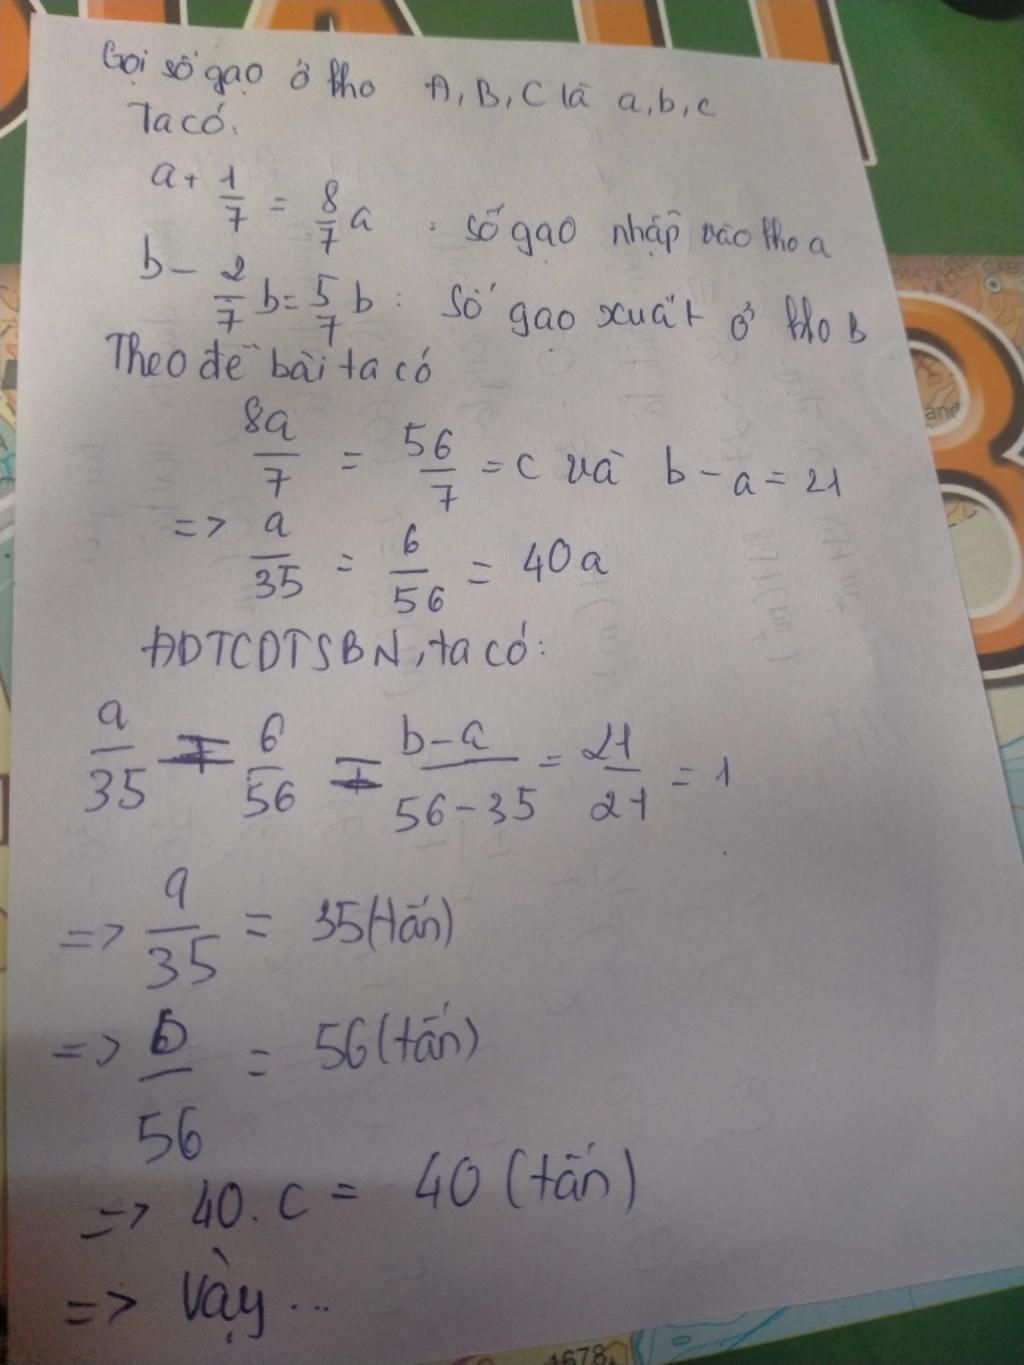 Gọi số gạo ở kho A, B, C là a, b, c
Ta có:
a + 1/7 = 8/7 a : số gạo nhập vào kho a
b - 2/7 b = 5/7 b : Số gạo xuất ở kho B
Theo đề bài ta có
8a/7 = 56/7 = c và b - a = 21
=> a/35 = 6/56 = 40a
ADTCDTSBN, ta có:
a/35 = 6/56 = b-a/56-35 = 21/21 = 1
=> a/35 = 35 (tấn)
=> b/56 = 56 (tấn)
=> 40. c = 40 (tấn)
=> Vậy ...
1678